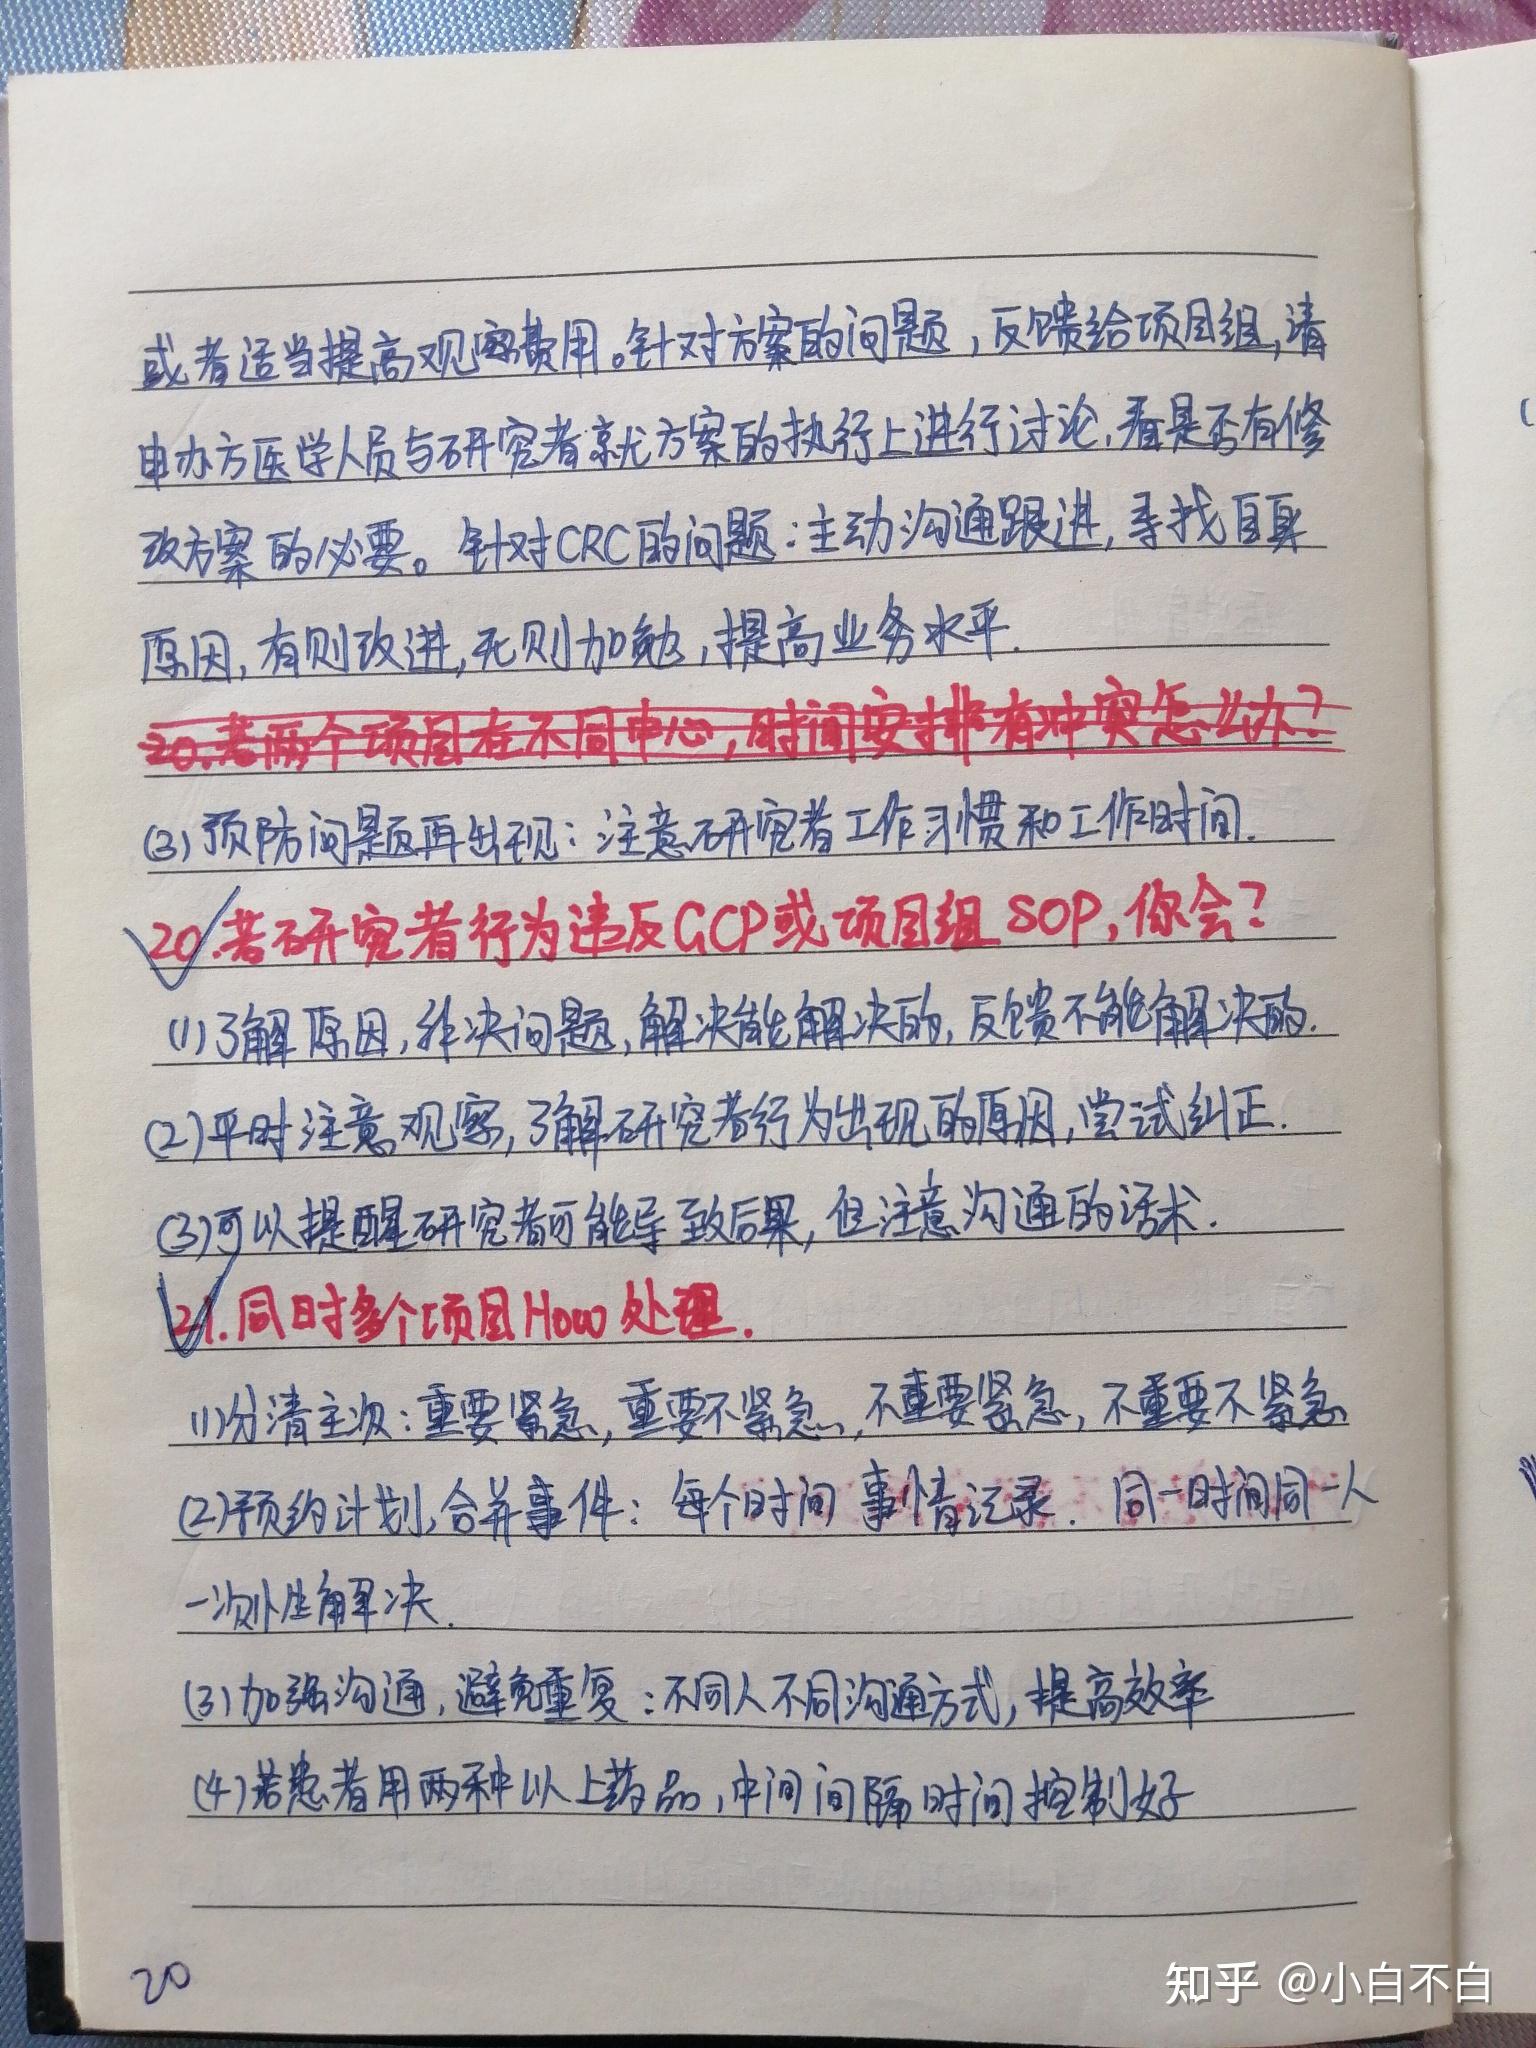 或者适当提高观察费用。针对方案的问题，反馈给项目组，请
申办方医学人员与研究者就方案的执行上进行讨论，看是否有修
改方案的必要。针对CRC的问题：主动沟通跟进，寻找自身
原因，有则改进，无则加勉，提高业务水平.
20.若两个项目在不同中心，时间安排有冲突怎么办？
(3)预防问题再出现：注意研究者工作习惯和工作时间.
20.若研究者行为违反GCP或项目组SOP，你会？
(1)了解原因，解决问题，解决能解决的，反馈不能解决的.
(2)平时注意观察，了解研究者行为出现的原因，尝试纠正.
(3)可以提醒研究者可能导致后果，但注意沟通的话术.
21.同时多个项目How处理.
(1)分清主次：重要紧急，重要不紧急，不重要紧急，不重要不紧急
(2)预约计划，合并事件：每个时间 事情记录. 同一时间同一人
一次性解决.
(3)加强沟通，避免重复：不同人不同沟通方式，提高效率
(4)若患者用两种以上药品，中间间隔时间控制好
20
知乎 @小白不白